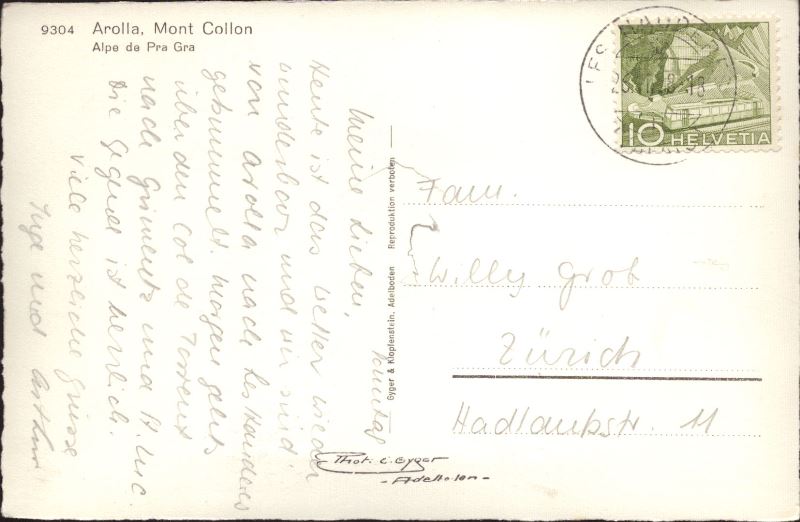 9304 Arolla, Mont Collon
Alpe de Pra Gra
Sonntag
Meine Lieben,
Heute ist das Wetter wieder
wunderbar und wir sind
von Arolla nach Les Haudères
gebummelt. Morgen gehts
über den Col de Torrent
nach Grimentz und St. Luc.
Die Gegend ist herrlich.
Viele herzliche Grüsse
Inge und Arthur
Gyger & Klopfenstein, Adelboden Reproduktion verboten
LES HAUDERES
10 HELVETIA
Fam.
Willy Grob
Zürich
Hadlaubstr. 11
Phot. E. Gyger
- Adelboden -